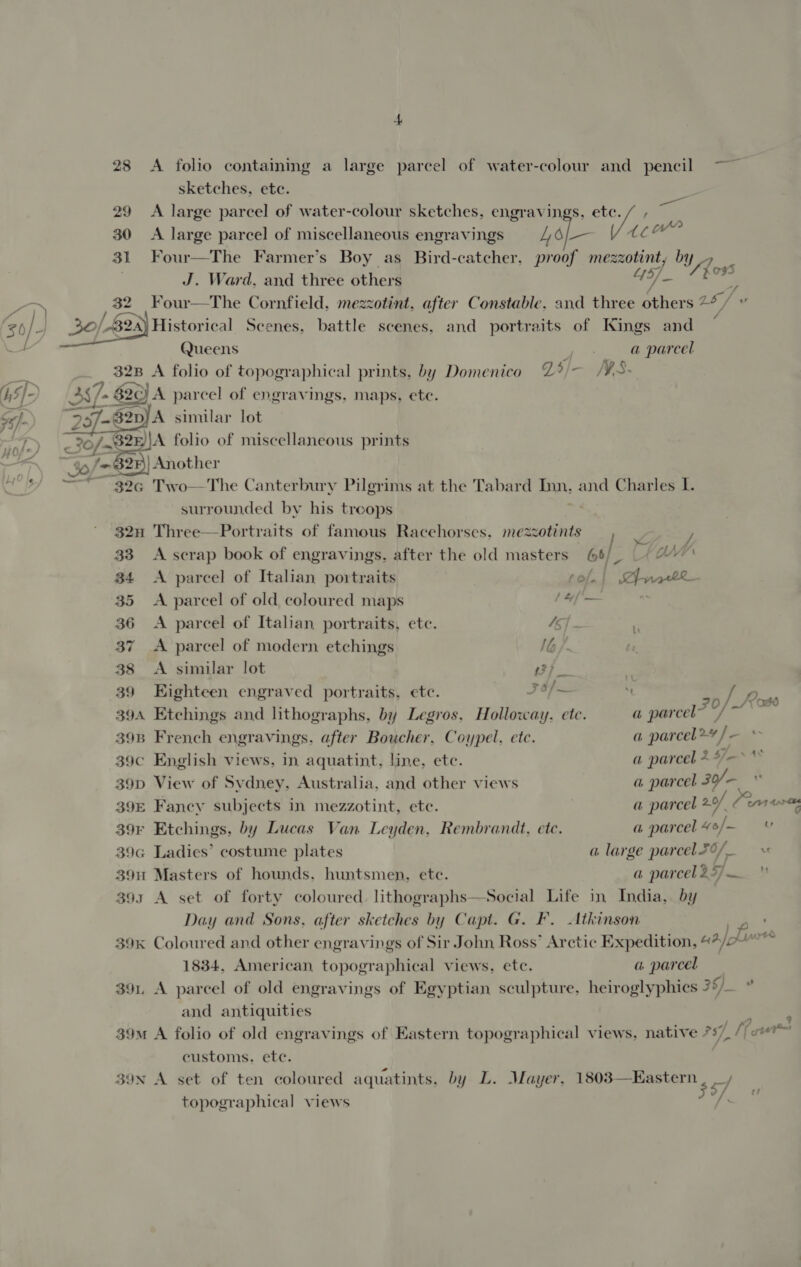 4
28 A folio containing a large parcel of water-colour and pencil
sketches, etc.
29 A large parcel of water-colour sketches, engravings, etc.
30 A large parcel of miscellaneous engravings
31 Four—The Farmer's Boy as Bird-catcher, proof mezzotint, by
J. Ward, and three others 45/-
32 Four—The Cornfield, mezzotint, after Constable, and three others 25/ "
30/- 30/- 32A Historical Scenes, battle scenes, and portraits of Kings and
Queens a parcel
32B A folio of topographical prints, by Domenico 25/-
45/- 32C A parcel of engravings, maps, etc.
32D A similar lot
30/- 32E A folio of miscellaneous prints
32F Another
32G Two—The Canterbury Pilgrims at the Tabard Inn, and Charles I.
surrounded by his troops
32H Three—Portraits of famous Racehorses, mezzotints
33 A scrap book of engravings, after the old masters
34 A parcel of Italian portraits
35 A parcel of old coloured maps
36 A parcel of Italian portraits, etc.
37 A parcel of modern etchings
38 A similar lot
39 Eighteen engraved portraits, etc.
39A Etchings and lithographs, by Legros, Holloway, etc. a parcel
39B French engravings, after Boucher, Coypel, etc. a parcel
39C English views, in aquatint, line, etc. a parcel
39D View of Sydney, Australia, and other views a parcel 30/- "
39E Fancy subjects in mezzotint, etc. a parcel
39F Etchings, by Lucas Van Leyden, Rembrandt, etc. a parcel
39G Ladies' costume plates a large parcel
39H Masters of hounds, huntsmen, etc. a parcel 25/- "
39J A set of forty coloured lithographs—Social Life in India, by
Day and Sons, after sketches by Capt. G. F. Atkinson
39K Coloured and other engravings of Sir John Ross' Arctic Expedition,
1834, American topographical views, etc. a parcel
39L A parcel of old engravings of Egyptian sculpture, heiroglyphics 35/- "
and antiquities
39M A folio of old engravings of Eastern topographical views, native
customs, etc.
39N A set of ten coloured aquatints, by L. Mayer, 1803—Eastern
topographical views